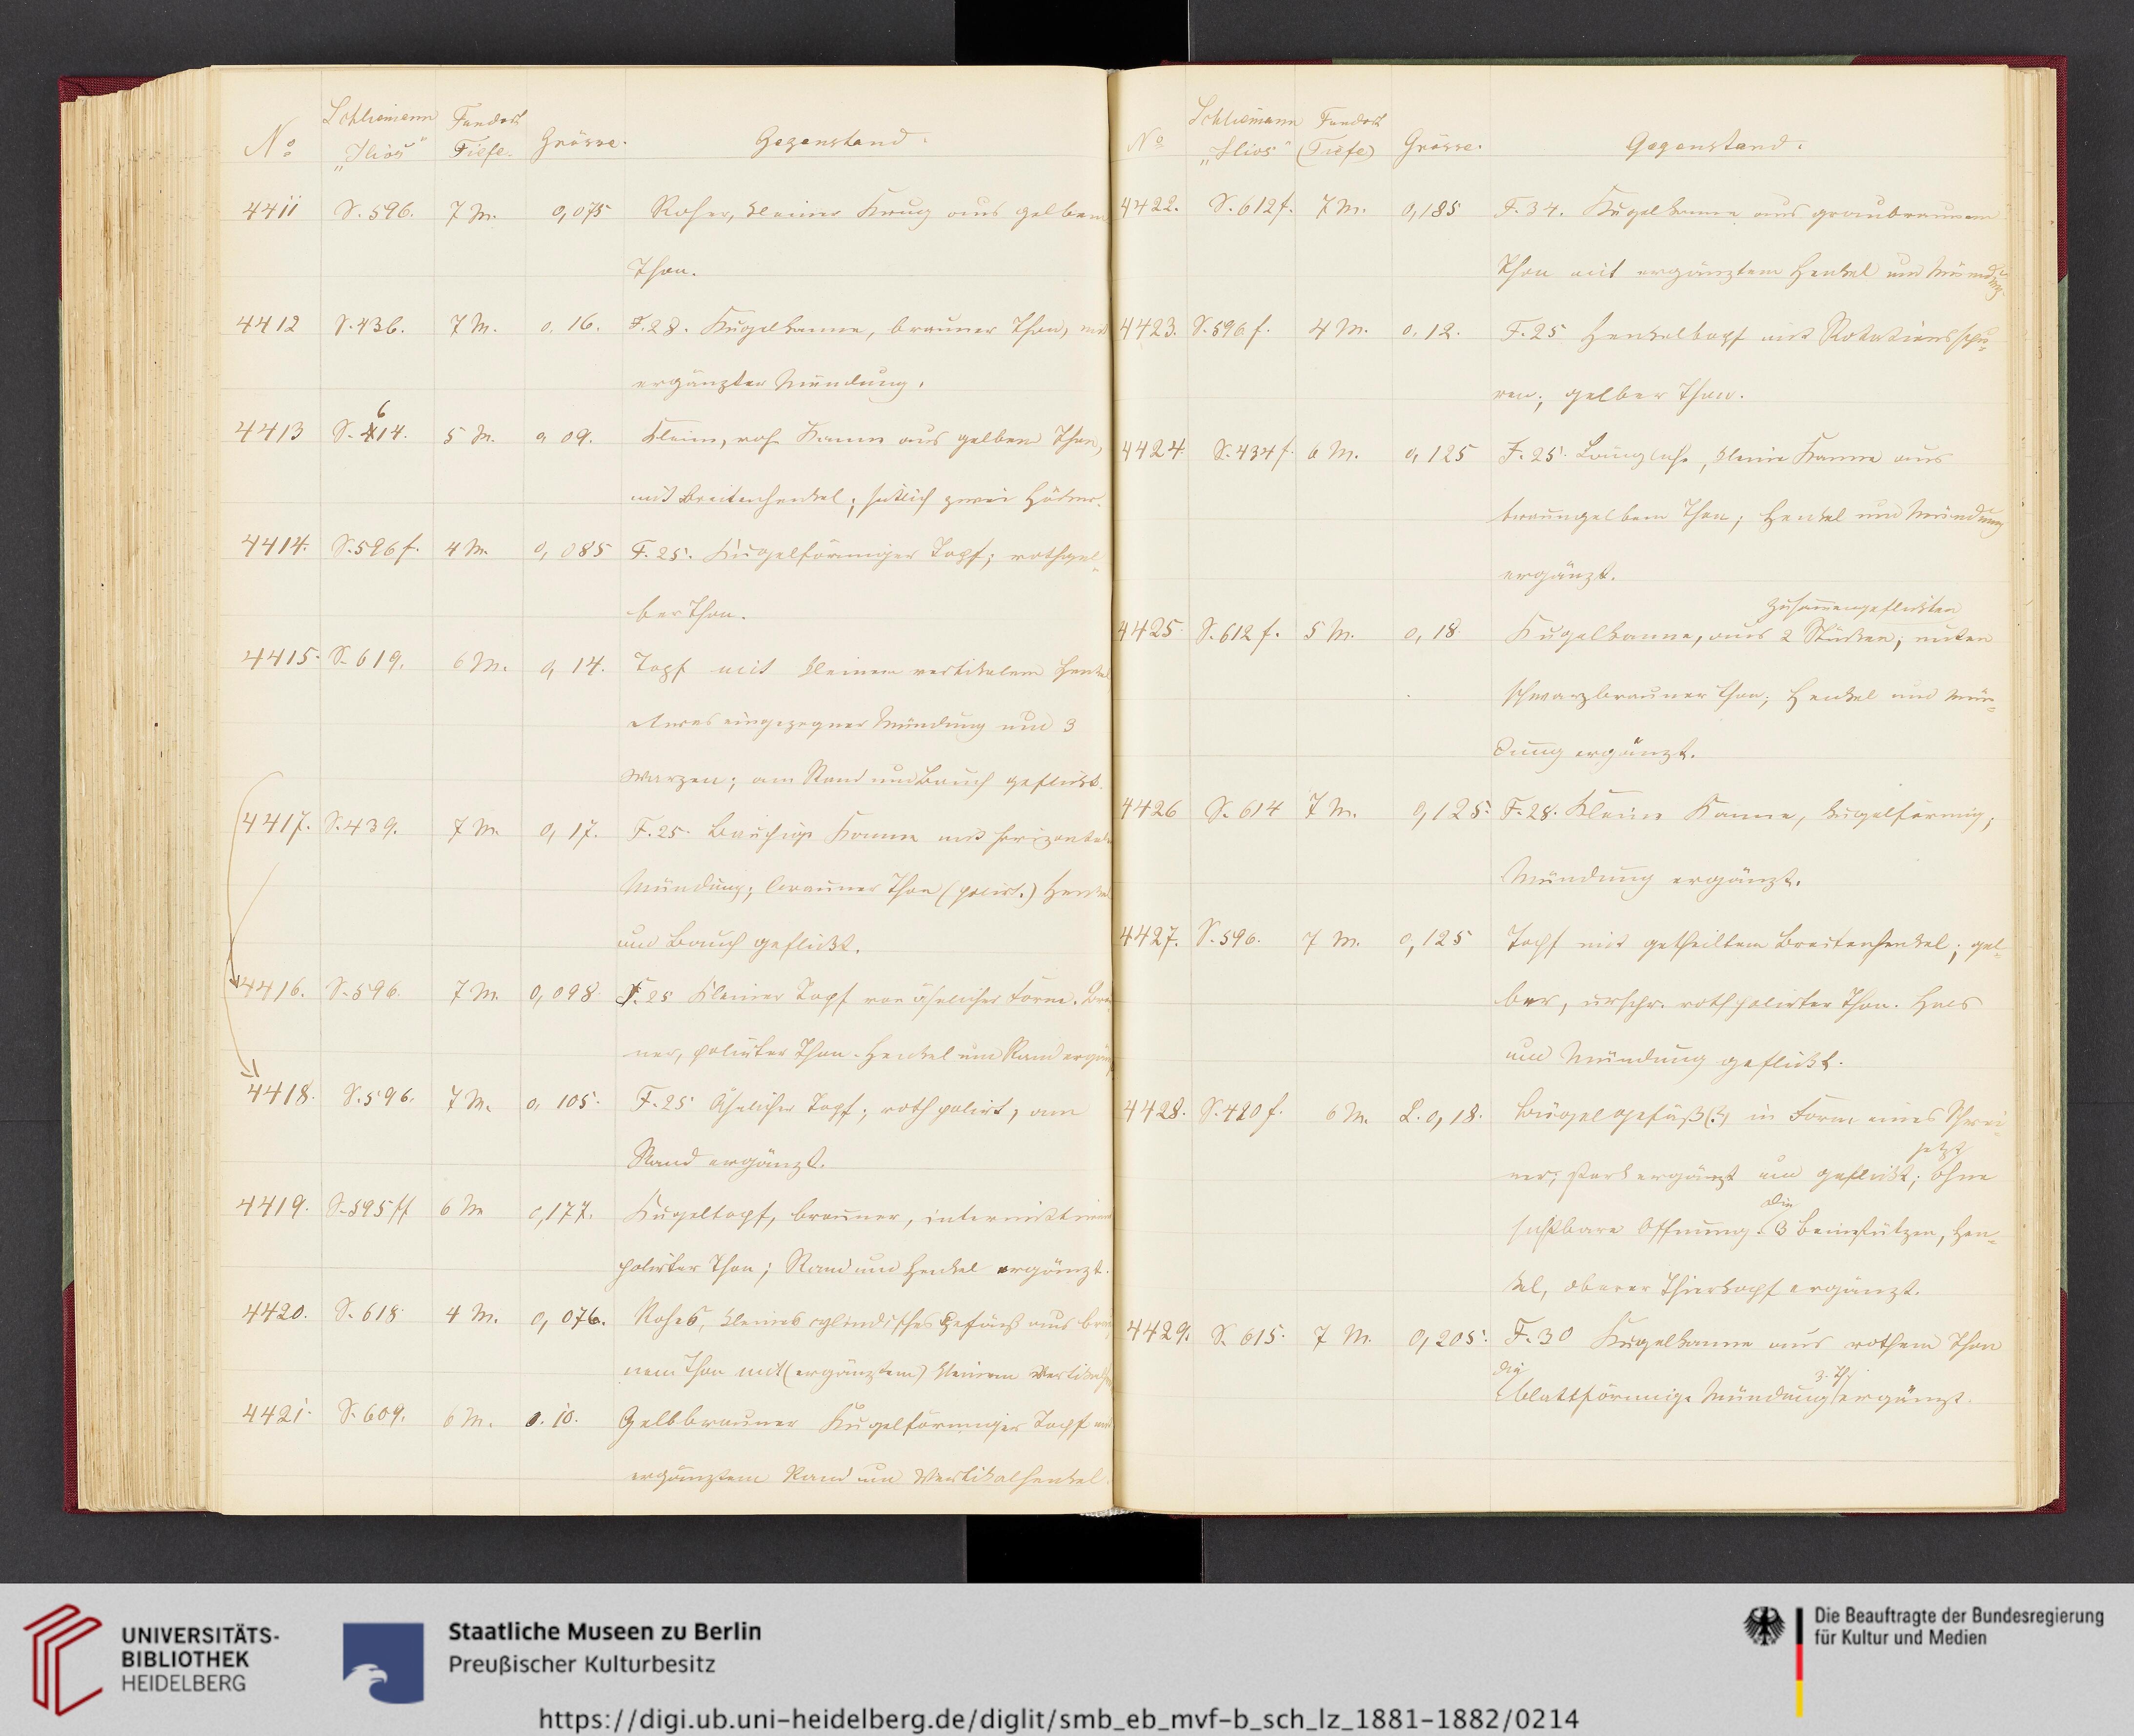 Nº Schliemann „Ilios“ Fundort Tiefe. Grösse. Gegenstand.
4411 S. 596. 7 M. 0,075 Roher, kleiner Krug aus gelbem
Thon.
4412 S. 436. 7 M. 0,16. F. 28. Kugelkanne, brauner Thon, mit
ergänzter Mündung.
4413 S. 614. 5 M. 0,09. Kleine, rohe Kanne aus gelbem Thon,
mit Breitenhenkel; seitlich zwei Höcker.
4414. S. 596 f. 4 M. 0,085 F. 25. Kugelförmiger Topf; rothgel-
ber Thon.
4415. S. 619. 6 M. 0,14. Topf mit kleinem vertikalem Henkel,
etwas eingezogener Mündung und 3
Warzen; am Rand und Bauch geflickt.
4417. S. 439. 7 M. 0,17. F. 25. Bauchige Kanne mit horizontaler
Mündung; brauner Thon (polirt.) Henkel
und Bauch geflickt.
4416. S. 596. 7 M. 0,098. F. 25 Kleiner Topf von ähnlicher Form. Brau
ner, polirter Thon. Henkel und Rand ergänzt
4418. S. 596. 7 M. 0,105. F. 25 Ähnlicher Topf; roth polirt, am
Rand ergänzt.
4419. S. 595 ff 6 M 0,177. Kugeltopf, brauner,
polirter Thon; Rand und Henkel ergänzt.
4420. S. 618 4 M. 0,076. Rohes, kleines cylindrisches Gefäss aus brau
nem Thon mit (ergänztem) kleinem
4421. S. 609. 6 M. 0.10. Gelbbrauner kugelförmiger Topf mit
ergänztem Rand und Vertikalhenkel.
Nº Schliemann „Ilios“ Fundort (Tiefe) Grösse. Gegenstand.
4422. S. 612 f. 7 M. 0,185 F. 34. Kugelkanne aus graubraunem
Thon mit ergänztem Henkel und Mündung.
4423. S. 596 f. 4 M. 0,12. F. 25 Henkeltopf mit Rotationsspu-
ren; gelber Thon.
4424. S. 434 f. 6 M. 0,125 F. 25. kleine Kanne aus
braungelbem Thon; Henkel und Mündung
ergänzt.
zusammengeflickten
4425. S. 612 f. 5 M. 0,18 Kugelkanne, aus 2 Stücken; unten
schwarzbrauner Thon; Henkel und Mün-
dung ergänzt.
4426 S. 614 7 M. 0,125. F. 28. Kleine Kanne, kugelförmig;
Mündung ergänzt.
4427. S. 596. 7 M. 0,125 Topf mit getheiltem Breitenhenkel; gel-
ber, urspr. roth polirter Thon. Hals
und Mündung geflickt.
4428. S. 420 f. 6 M. L. 0,18. Bügelgefäß(?) in Form eines
jetzt
stark ergänzt und geflickt; ohne
die
sichtbare Öffnung. 3 Beinstützen, Hen-
kel, oberer Thierkopf ergänzt.
4429. S. 615. 7 M. 0,205. F. 30 Kugelkanne aus rothem Thon
die z. Th.
blattförmige Mündung ergänzt.
UNIVERSITÄTS-
BIBLIOTHEK
HEIDELBERG
Staatliche Museen zu Berlin
Preußischer Kulturbesitz
Die Beauftragte der Bundesregierung
für Kultur und Medien
https://digi.ub.uni-heidelberg.de/diglit/smb_eb_mvf-b_sch_lz_1881-1882/0214